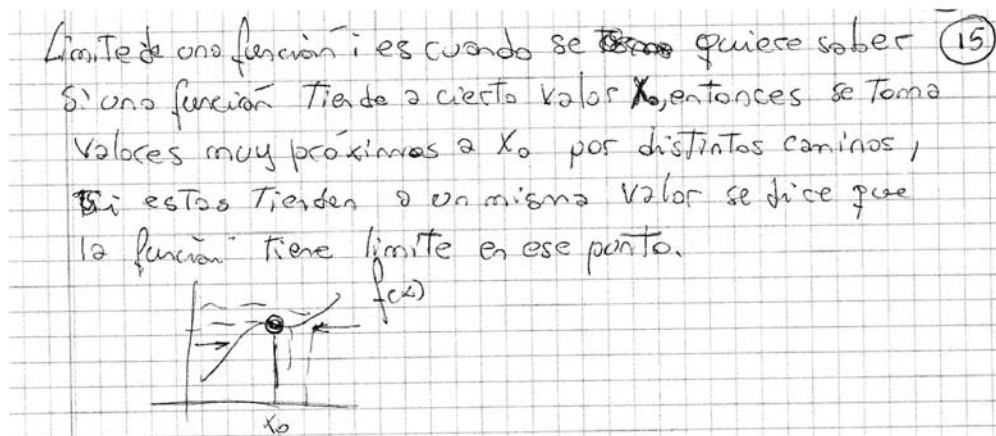 Límite de una función: es cuando se quiere saber 15
si una función tiende a cierto valor x₀, entonces se toma
valores muy próximos a x₀ por distintos caminos,
si estos tienden a un mismo valor se dice que
la función tiene límite en ese punto.
f(x)
x₀